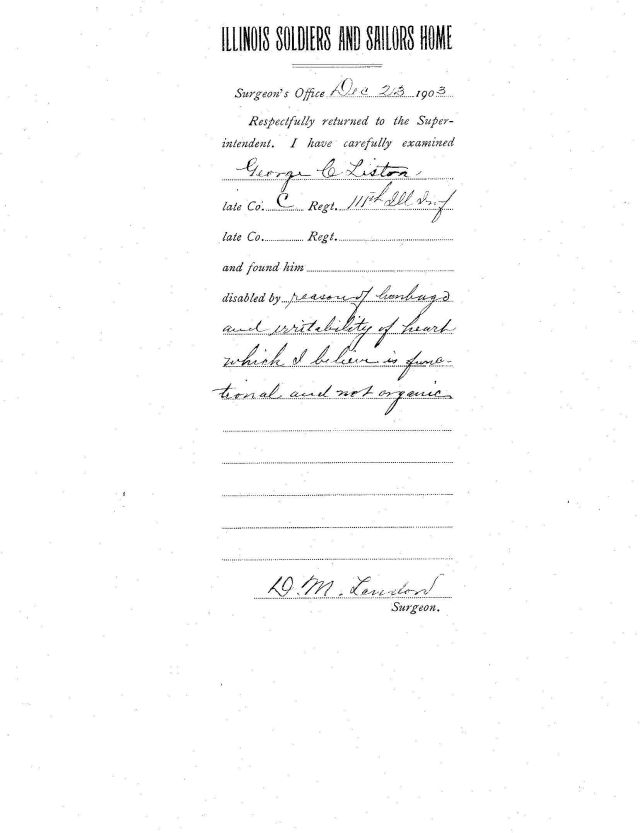 ILLINOIS SOLDIERS AND SAILORS HOME
Surgeon's Office Dec 23 1903
Respectfully returned to the Super-
intendent. I have carefully examined
George C Liston
late Co. C Regt. 115th Ill Inf
late Co. Regt.
and found him
disabled by reason of lumbago
and irritability of heart
which I believe is func-
tional and not organic
D. M. Landon
Surgeon.